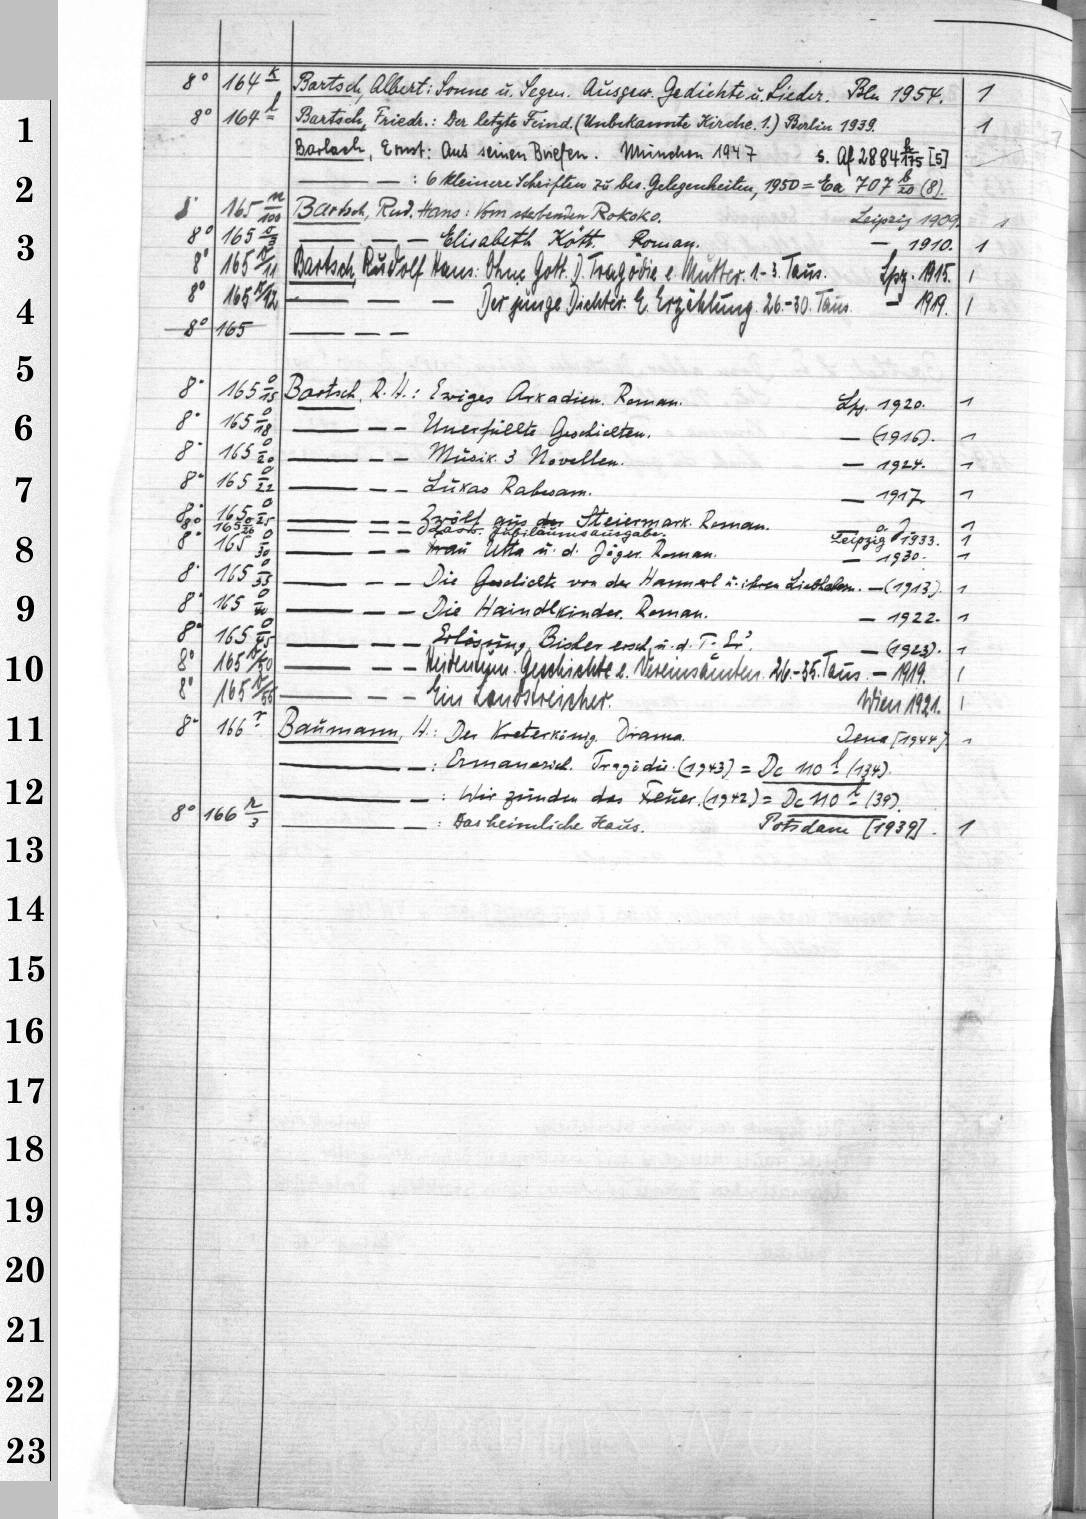 8° 164 k Bartsch, Albert: Sonne u. Segen. Ausgew. Gedichte u. Lieder. Bln 1954. 1
8° 164 l Bartsch, Friedr.: Der letzte Feind. (Unbekannte Kirche. 1.) Berlin 1939. 1
Barlach, Ernst: Aus seinen Briefen. München 1947 s. Af 2884 h/175 [5]
— — : 6 kleinere Schriften zu bes. Gelegenheiten, 1950 = Ea 707 b/20 (8).
8° 165 n/100 Bartsch, Rud. Hans: Vom sterbenden Rokoko. Leipzig 1909. 1
8° 165 o/3 — — — Elisabeth Kött. Roman. — 1910. 1
8° 165 o/11 Bartsch, Rudolf Hans: Ohne Gott. D. Tragödie e. Mutter. 1-3. Taus. Lpz. 1915. 1
8° 165 o/12 — — — Der junge Dichter. E. Erzählung. 26.-30. Taus. — 1919. 1
8° 165 — — —
8° 165 o/15 Bartsch, R. H.: Ewiges Arkadien. Roman. Lpz. 1920. 1
8° 165 o/18 — — — Unerfüllte Geschichten. — (1916). 1
8° 165 o/20 — — — Musik. 3 Novellen. — 1924. 1
8° 165 o/22 — — — Lukas Rabesam. — 1917 1
8° 165 o/25 — — — Zwölf aus der Steiermark. Roman. — o. J. 1
8° 165 — — Jubiläumsausgabe. Leipzig 1933. 1
8° 165 o/30 Frau Utta u. d. Jäger. Roman. — 1930. 1
8° 165 o/35 — — — Die Geschichte von der Hannerl u. ihren Liebhabern. — (1913). 1
8° 165 o/40 — — — Die Haindlkinder. Roman. — 1922. 1
8° 165 o/45 — — — Erlösung. Bisher ersch. u. d. T. — (1923). 1
8° 165 o/50 — — — Heidentum. Geschichte e. Vereinsamten. 26.-35. Taus. — 1919. 1
8° 165 o/55 — — — Ein Landstreicher. Wien 1921. 1
8° 166 r Baumann, H.: Der Kreterkönig. Drama. Jena [1944]. 1
— — : Ermanerich. Tragödie. (1943) = Dc 110 l (134).
— — : Wir zünden das Feuer. (1942) = Dc 110 l (39).
8° 166 r/3 — — : Das heimliche Haus. Potsdam [1939]. 1
1
2
3
4
5
6
7
8
9
10
11
12
13
14
15
16
17
18
19
20
21
22
23